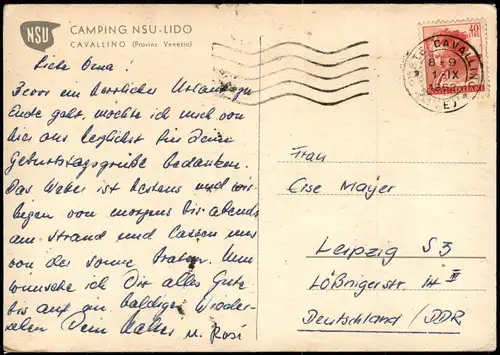 NSU
CAMPING NSU-LIDO
CAVALLINO (Provinz Venezia)
Liebe Oma!
Bevor ein herrlicher Urlaub zu
Ende geht, möchte ich mich von
hier aus herzlichst für Deine
Geburtstagsgrüße bedanken.
Das Wetter ist bestens und wir
liegen von morgens bis abends
am Strand und lassen uns
von der Sonne braten. Nun
wünsche ich Dir alles Gute
bis auf ein baldiges Wieder-
sehen Dein Walter u. Rosi
40
CAVALLINO
8-9
1-IX
Frau
Else Mayer
Leipzig S3
Lößnigerstr. 14 III
Deutschland / DDR